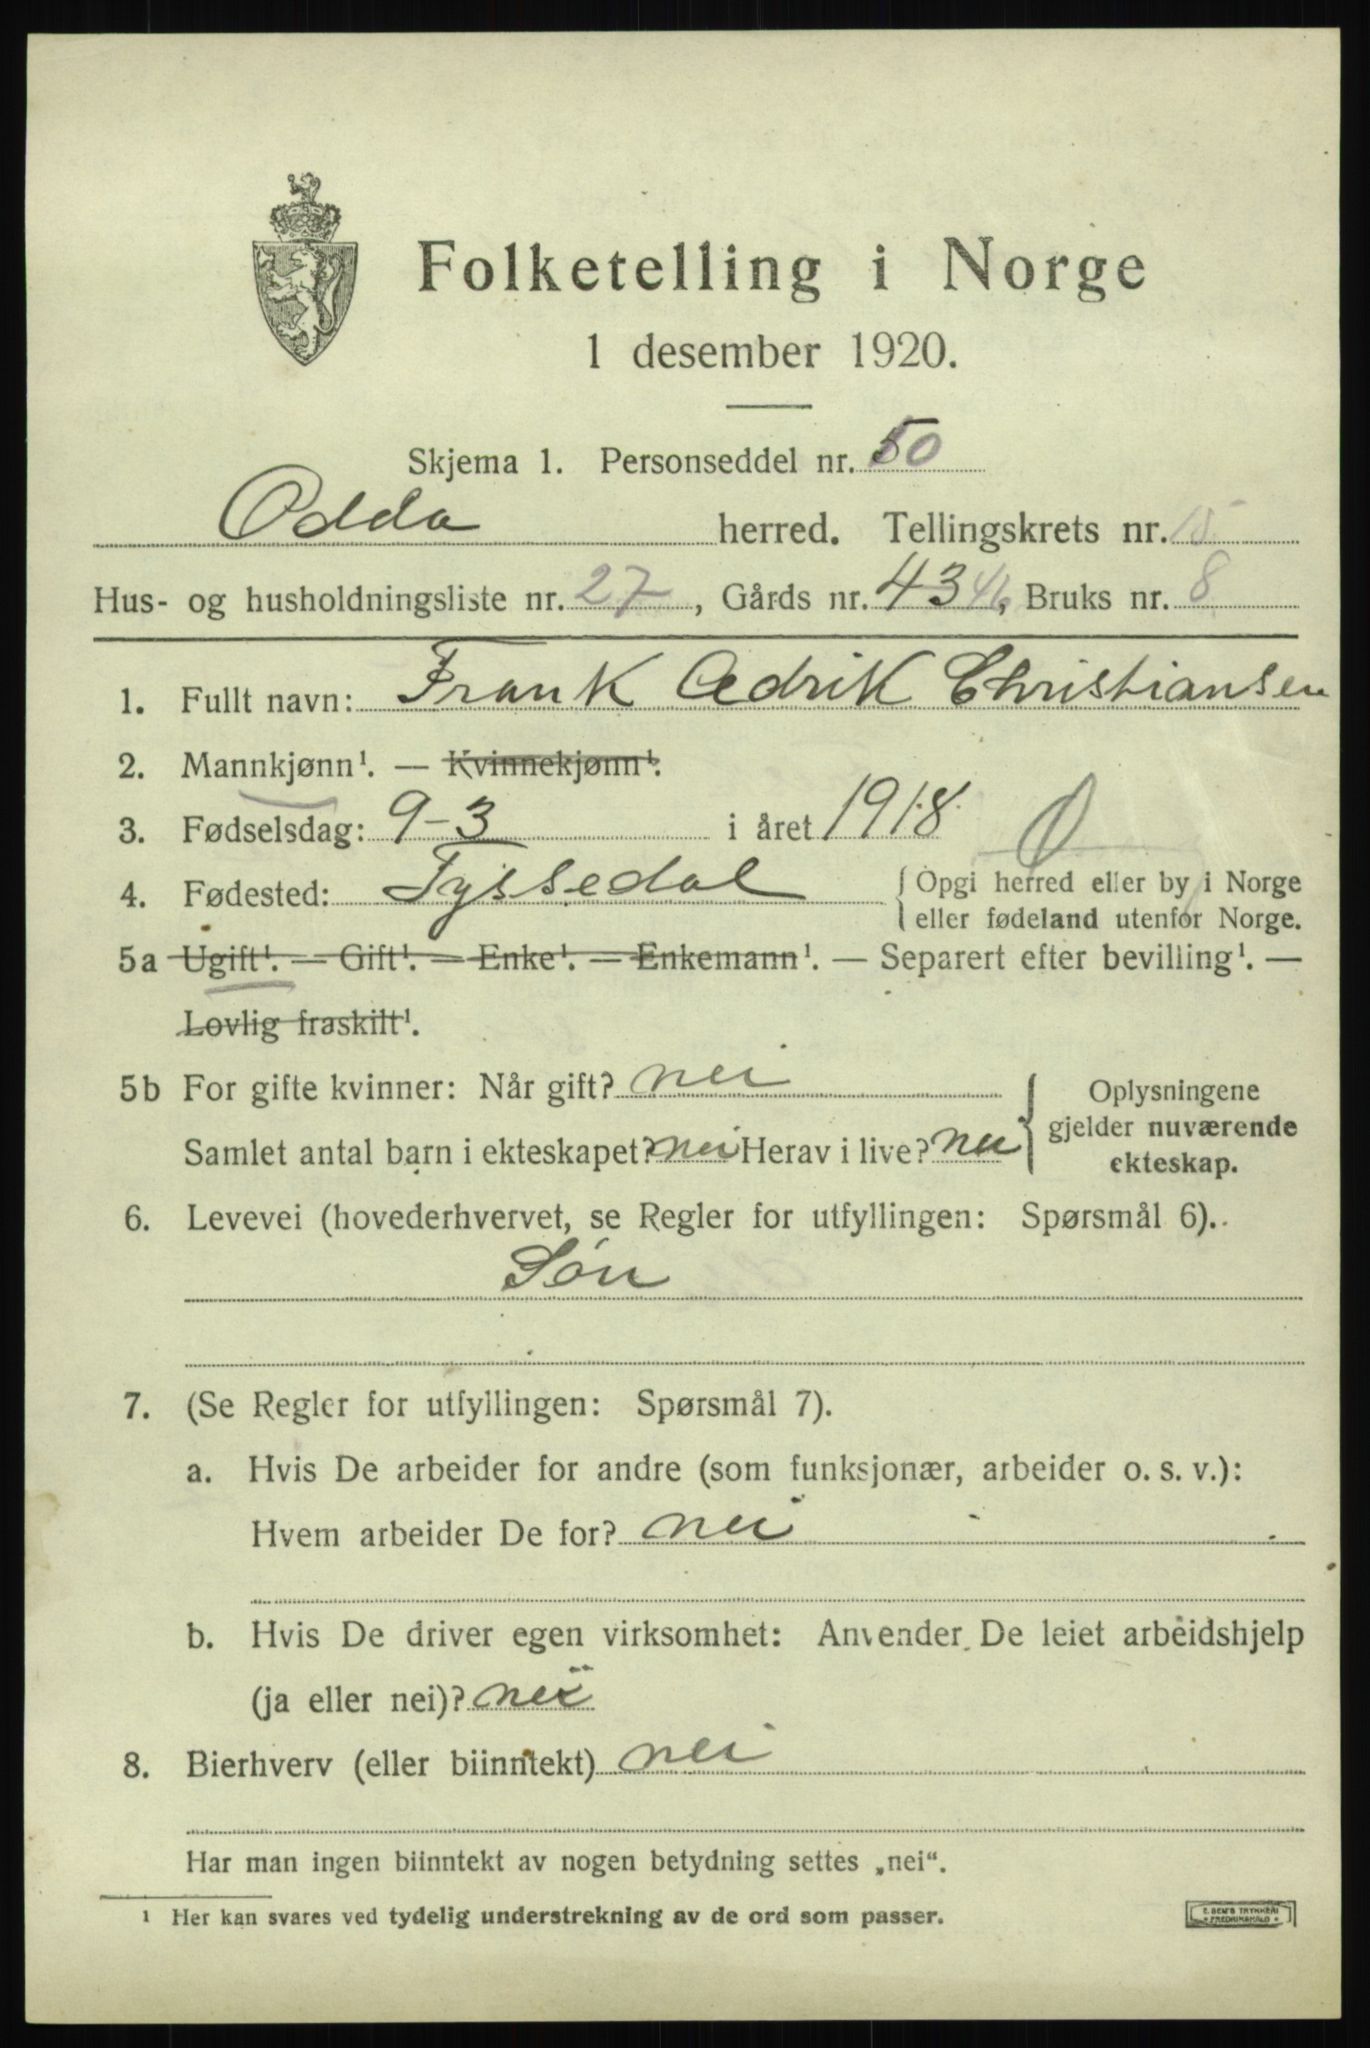 Folketelling i Norge
1 desember 1920.
Skjema 1. Personseddel nr. 50
Odda herred. Tellingskrets nr. 15
Hus- og husholdningsliste nr. 27, Gårds nr. 43 46, Bruks nr. 8
1. Fullt navn: Frank Adrik Christiansen
2. Mannkjønn¹. — Kvinnekjønn¹.
3. Fødselsdag: 9-3 i året 1918.
4. Fødested: Tyssedal { Opgi herred eller by i Norge
eller fødeland utenfor Norge.
5a Ugift¹. — Gift¹. — Enke¹. — Enkemann¹. — Separert efter bevilling¹. —
Lovlig fraskilt¹.
5b For gifte kvinner: Når gift? nei
Samlet antal barn i ekteskapet? nei Herav i live? nei
{ Oplysningene
gjelder nuværende
ekteskap.
6. Levevei (hovederhvervet, se Regler for utfyllingen: Spørsmål 6).
Søn
7. (Se Regler for utfyllingen: Spørsmål 7).
a. Hvis De arbeider for andre (som funksjonær, arbeider o. s. v.):
Hvem arbeider De for? nei
b. Hvis De driver egen virksomhet: Anvender De leiet arbeidshjelp
(ja eller nei)? nei
8. Bierhverv (eller biinntekt) nei
Har man ingen biinntekt av nogen betydning settes „nei“.
¹ Her kan svares ved tydelig understrekning av de ord som passer.